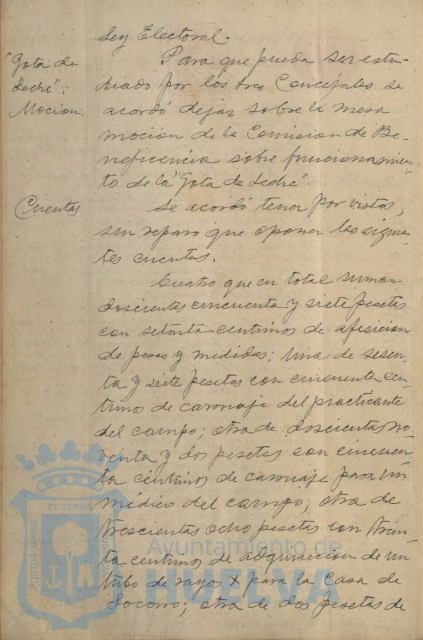 Ley Electoral.
"Gota de Leche"; Moción.
Para que pueda ser estu-
diado por los tres Concejales se
acordó dejar sobre la mesa
moción de la Comision de Be-
neficencia sobre funcionamien-
to de la "Gota de Leche".
Cuentas
Se acordó tener por vistas,
sin reparo que oponer las siguien-
tes cuentas.
Cuatro que en total suman
doscientas cincuenta y siete pesetas
con setenta centimos de aficion
de pesas y medidas; una de sesen-
ta y siete pesetas con cincuenta cen-
timos de carruaje del practicante
del campo; otra de doscientas no-
venta y dos pesetas con cincuen-
ta centimos de carruaje para un
médico del campo; otra de
trescientas ocho pesetas con trein-
ta centimos de adquisicion de un
tubo de rayos X para la Casa de
Socorro; otra de dos pesetas de
Ayuntamiento de
HUELVA
PORTUS MARIS
ET TERRAE